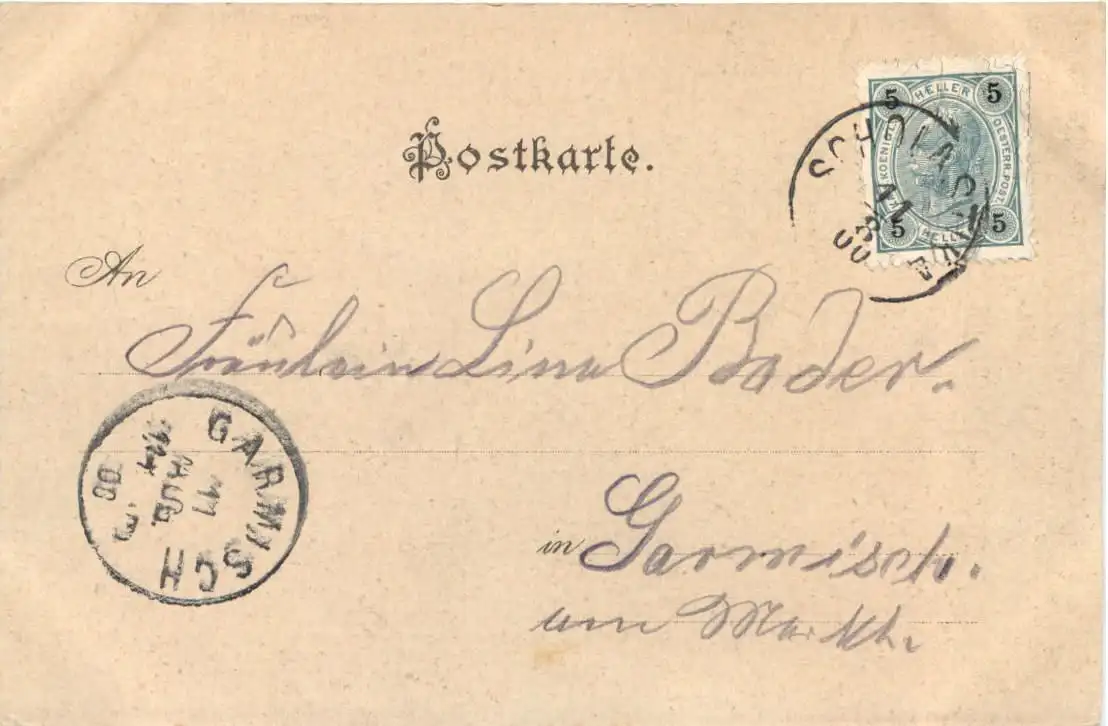 Postkarte.
5 HELLER 5
KOENIGL.
OESTERR. POST.
5 HELLER 5
11
8
00
An
Fräulein Lina Bader.
GARMISCH
11
AUG.
in Garmisch.
am Markth.